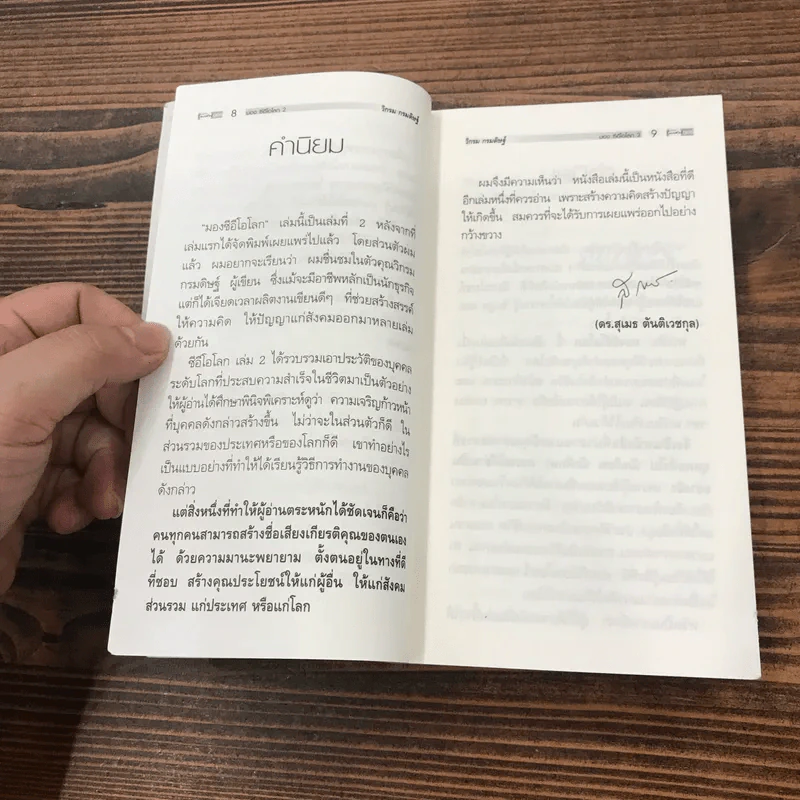 8 มอง ซีอีโอโลก 2 วิกรม กรมดิษฐ์
คำนิยม
"มองซีอีโอโลก" เล่มนี้เป็นเล่มที่ 2 หลังจากที่
เล่มแรกได้จัดพิมพ์เผยแพร่ไปแล้ว โดยส่วนตัวผม
แล้ว ผมอยากจะเรียนว่า ผมชื่นชมในตัวคุณวิกรม
กรมดิษฐ์ ผู้เขียน ซึ่งแม้จะมีอาชีพหลักเป็นนักธุรกิจ
แต่ก็ได้เจียดเวลาผลิตงานเขียนดีๆ ที่ช่วยสร้างสรรค์
ให้ความคิด ให้ปัญญาแก่สังคมออกมาหลายเล่ม
ด้วยกัน
ซีอีโอโลก เล่ม 2 ได้รวบรวมเอาประวัติของบุคคล
ระดับโลกที่ประสบความสำเร็จในชีวิตมาเป็นตัวอย่าง
ให้ผู้อ่านได้ศึกษาพินิจพิเคราะห์ดูว่า ความเจริญก้าวหน้า
ที่บุคคลดังกล่าวสร้างขึ้น ไม่ว่าจะในส่วนตัวก็ดี ใน
ส่วนรวมของประเทศหรือของโลกก็ดี เขาทำอย่างไร
เป็นแบบอย่างที่ทำให้ได้เรียนรู้วิธีการทำงานของบุคคล
ดังกล่าว
แต่สิ่งหนึ่งที่ทำให้ผู้อ่านตระหนักได้ชัดเจนก็คือว่า
คนทุกคนสามารถสร้างชื่อเสียงเกียรติคุณของตนเอง
ได้ ด้วยความมานะพยายาม ตั้งตนอยู่ในทางที่ดี
ที่ชอบ สร้างคุณประโยชน์ให้แก่ผู้อื่น ให้แก่สังคม
ส่วนรวม แก่ประเทศ หรือแก่โลก
วิกรม กรมดิษฐ์ มอง ซีอีโอโลก 2 9
ผมจึงมีความเห็นว่า หนังสือเล่มนี้เป็นหนังสือที่ดี
อีกเล่มหนึ่งที่ควรอ่าน เพราะสร้างความคิดสร้างปัญญา
ให้เกิดขึ้น สมควรที่จะได้รับการเผยแพร่ออกไปอย่าง
กว้างขวาง
(ดร.สุเมธ ตันติเวชกุล)